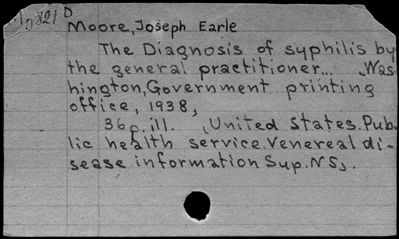 D
Moore, Joseph Earle
The Diagnosis of syphilis by
the general practitioner... Was-
hington, Government printing
office, 1938,
36p. ill. (United States. Pub-
lic health service. Venereal di-
sease information Sup. N5).